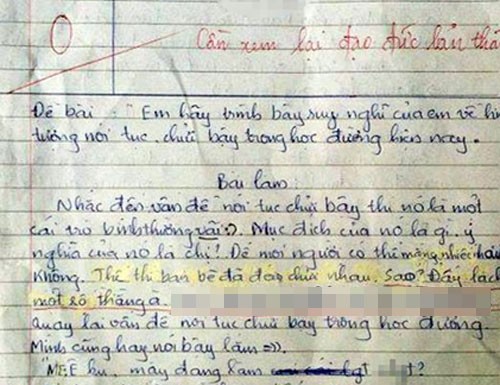 0
Cần xem lại đạo đức bản thâ
Đề bài : "Em hãy trình bày suy nghĩ của em về hi
tượng nói tục, chửi bậy trong học đường hiện nay.
Bài làm
Nhắc đến vấn đề nói tục chửi bậy thì nó là một
cái trò bình thường vãi :). Mục đích của nó là gì, ý
nghĩa của nó là chi! Để mọi người có thể mắng nhiếc hay
không. Thế thì bạn bè đã đéo chửi nhau. Sao? Đấy là cách
một số thằng a.
quay lại vấn đề nói tục chửi bậy trong học đường.
Mình cũng hay nói bậy lắm =)).
mày đang làm